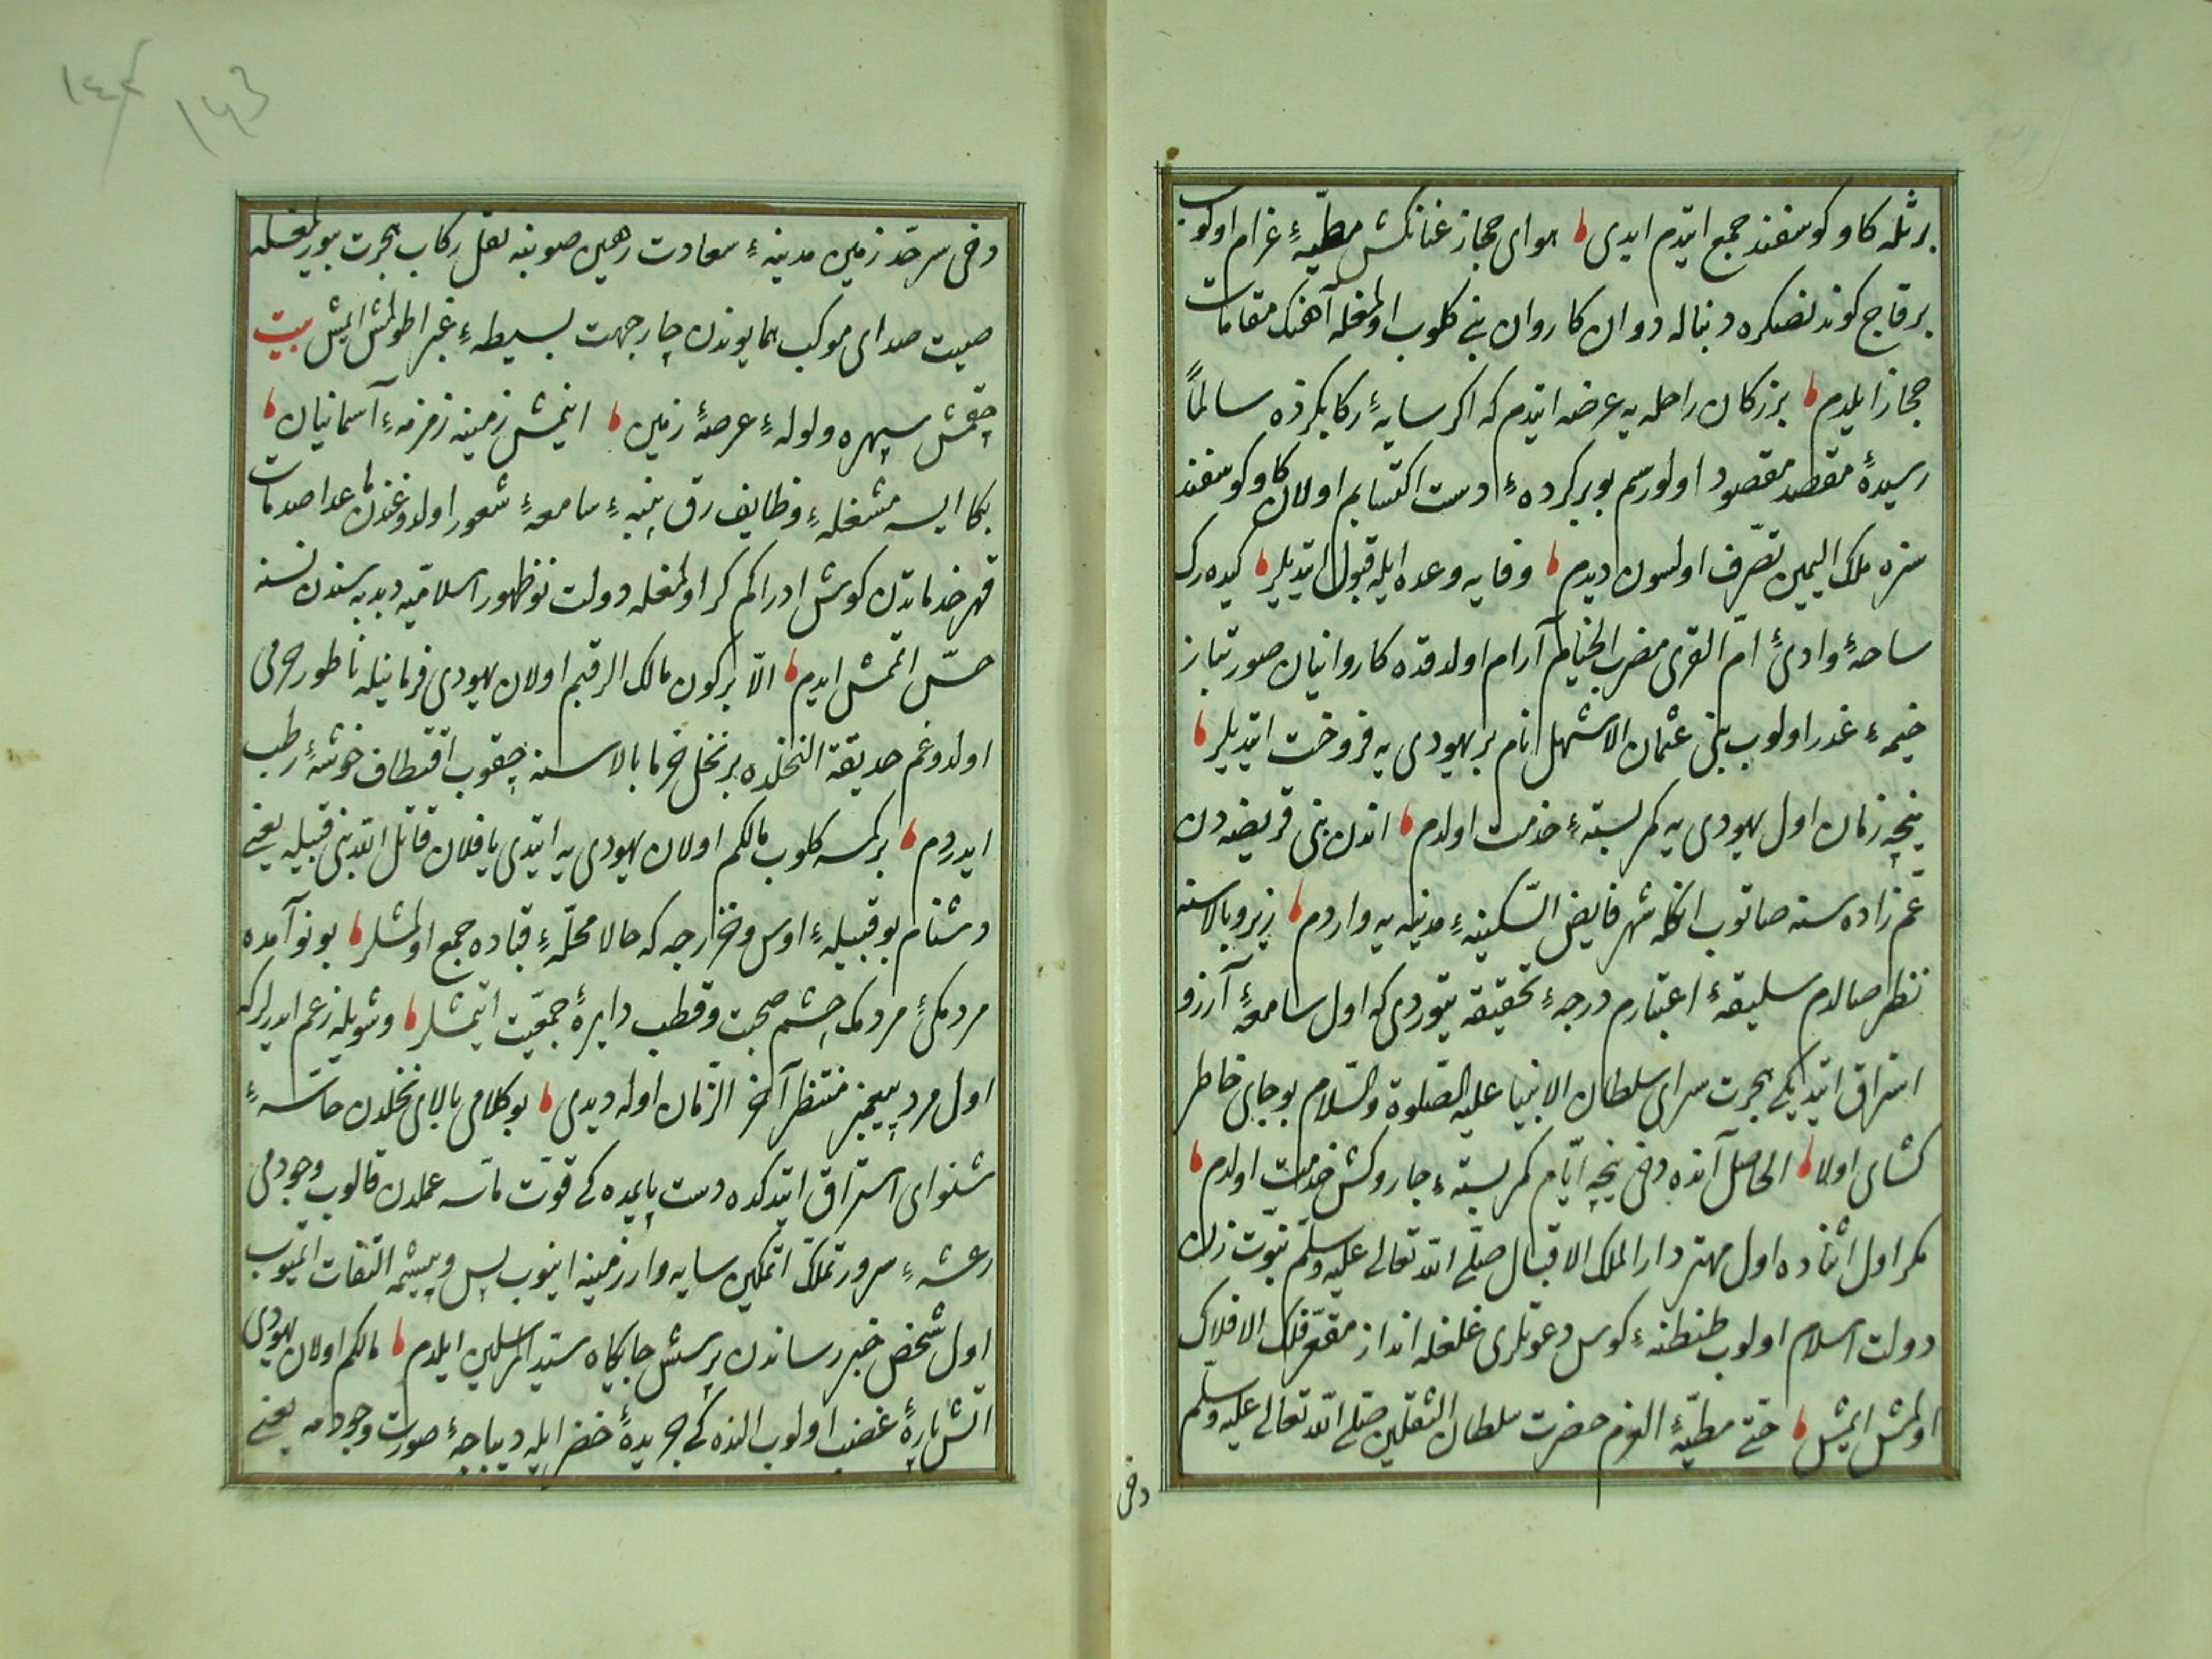 بر ثله كاو و كوسفند جمع ايتدم ايدى هواى حجاز عنانكش مطيّهٔ غرام اولوب
بر قاج كوندنصكره دنباله دوان كاروان بنى كلوب اولمغله آهنك مقامات
حجاز ايلدم بزركان راحله يه عرضه ايتدم كه اكر سايهٔ ركابكزده سالماً
رسيدهٔ مقصد مقصود اولورسم بو بركردهٔ دست اكتسابم اولان كاو و كوسفند
سزه ملك اليمين تصرّف اولسون ديدم وفايه وعده ايله قبول ايتديلر كيده رك
ساحهٔ وادئ امّ القرى مضرب الخيام آرام اولدقده كاروانيان صورتباز
خيمهٔ غدر اولوب بنى عثمان الاشهل نام بر يهودى يه فروخت ايتديلر
نيچه زمان اول يهودى يه كمر بستهٔ خدمت اولدم اندن بنى قريضه دن
عم زاده سنه صاتوب انكله شهر فايض السّكينهٔ مدينه يه واردم زير و بالاسنه
نظر صالدم سليقهٔ اعتبارم درجهٔ تحقيقه يتوردى كه اول سامعهٔ آرزو
استراق ايتديكى هجرت سراى سلطان الانبيا عليه الصّلوة والسّلام بو جاى خاطر
كشاى اولا الحاصل آنده دخى نيچه ايّام كمر بستهٔ جاروكش خدمت اولدم
مكر اول اثناده اول مهتر دار الملك الاقبال صلّى الله تعالى عليه وسلّم نبوّت زن
دولت اسلام اولوب طنطنهٔ كوس دعوتلرى غلغله انداز مقعّر فلك الافلاك
اولمش ايمش حتى مطيّهٔ العزم حضرت سلطان الثقلين صلى الله تعالى عليه وسلّم
دخى
١٤٣
دخى سرحدّ زمين مدينهٔ سعادت رهين صوبنه نقل ركاب هجرت بيورلمغله
صيت صداى موكب همايوندن چار جهت بسيطهٔ غبرا طولمش ايمش بيت
چقمش سپهره ولولهٔ عرصهٔ زمين اينمش زمينه زمزمهٔ آسمانيان
بكا ايسه مشغلهٔ وظايف رق پنبهٔ سامعهٔ شعور اولدوغندن ماعدا صدمات
قهر خدماتدن كوش ادراكم كر اولمغله دولت نوظهور اسلاميّه دبدبه سندن نسنه
حسّ اتمش ايدم الّا بر كون مالك الرقبم اولان يهودى فرمانيله ناطور خرمى
اولدوغم حديقة النخلده بر نخل خرما بالاسنه چقوب اقتطاف خوشهٔ رطب
ايدردم بر كمسه كلوب مالكم اولان يهودى يه ايتدى يا فلان قاتل الله بنى قبيله يعنى
دشنام بو قبيلهٔ اوس و خزرجه كه حالا محلّهٔ قباده جمع اولمشلر بو نوآمده
مردمكئ مردمك چشم صحبت و قطب دايرهٔ جمعيّت ايتمشلر و شويله زعم ايدرلر كه
اول مرد پيغمبر منتظر آخر الزّمان اوله ديدى بو كلامى بالاى نخلدن حاسّهٔ
شنواى استراق ايتدكده دست پايمده كى قوّت ماسّه عملدن قالوب وجودمى
رعشهٔ سرور تملّك اتمكين سايه وار زمينه اينوب پس و پيشمه التفات اتميوب
اول شخص خبر رساندن پرسش جايكاه سيّد المرسلين ايلدم مالكم اولان يهودى
اتش پارهٔ غضب اولوب النده كى جريدهٔ خضر ايله ديباجهٔ صورت وجودمه يعنى